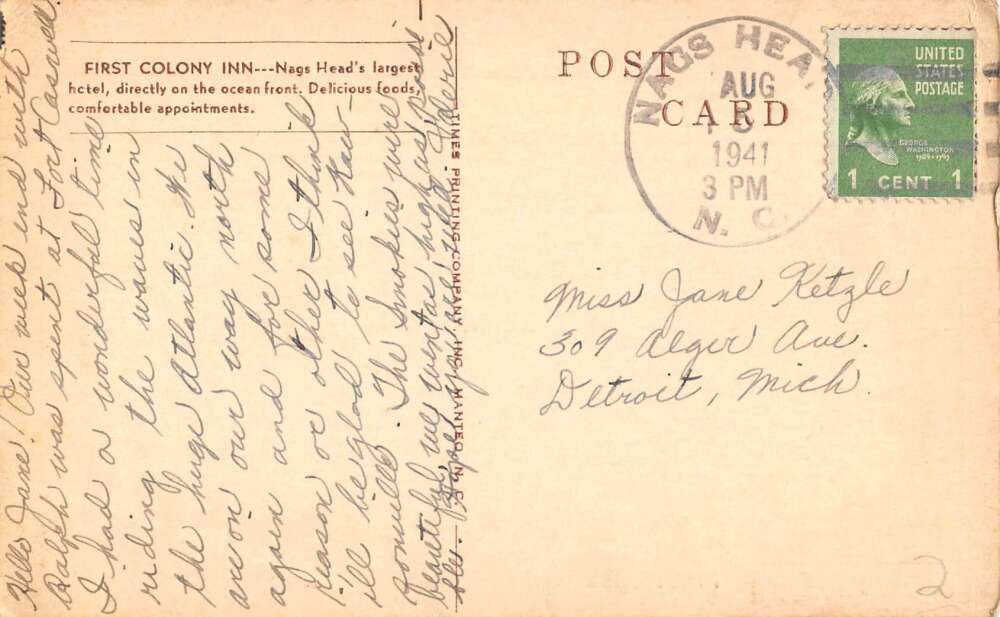 FIRST COLONY INN---Nags Head's largest
hotel, directly on the ocean front. Delicious foods,
comfortable appointments.
Hello Jane! Our week end with
Ralph was spent at Fort Caswell.
I had a wonderful time
riding the waves in
the huge Atlantic. We
are on our way north
again and for some
reason or other I think
i'll be glad to see
The Smokies were
beautiful, we went as high as possi-
ble. Hope you are well.
TIMES PRINTING COMPANY, INC., MANTEO, N. C.
POST CARD
NAGS HEAD,
AUG
1941
3 PM
N. C.
UNITED
STATES
POSTAGE
GEORGE
WASHINGTON
1789-1797
1 CENT 1
Miss Jane Ketzle
309 Alger Ave.
Detroit, Mich.
2